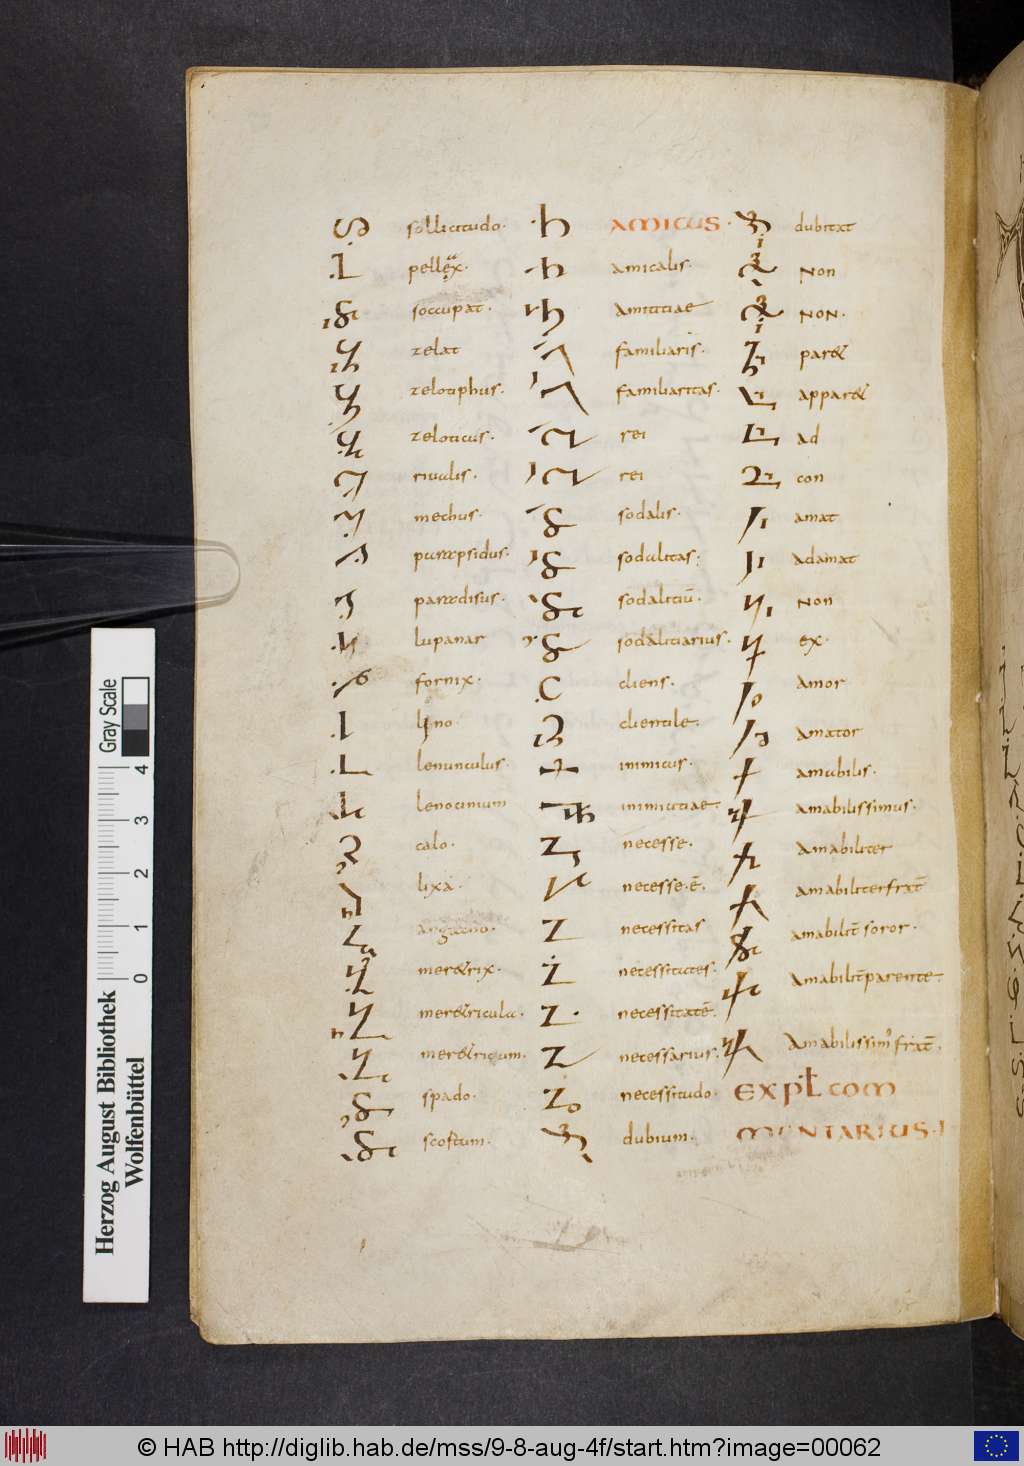 sollicitudo.
pellex.
soccupat.
zelat
zelotiphus.
zeloticus.
riuulis.
mechus.
paradisus.
lupanar
fornix.
leno.
lenunculus.
lenocinium
calo.
lixa.
meretrix.
meretricula.
meretricium.
spado.
scortum.
AMICUS.
amicalis.
amicitiae
familiaris.
familiaritas.
rei
rei
sodalis.
sodalitas:
sodalitiū.
sodalitiarius.
cliens.
clientile.
inimicus.
inimicitiae.
necesse.
necesse.ē.
necessitas
necessitates.
necessitatē.
necessarius.
necessitudo.
dubium.
dubitat
Non
NON.
paret
apparet
ad
con
amat
adamat
Non
ex.
amor
amator
amabilis.
amabilissimus.
amabiliter
amabiliterfrat̄
amabilit̄ soror.
amabilit̄parente.
amabilissim frat̄.
EXPL̄ COM
MENTARIUS.I
Gray Scale
0 1 2 3 4
Herzog August Bibliothek
Wolfenbüttel
© HAB http://diglib.hab.de/mss/9-8-aug-4f/start.htm?image=00062